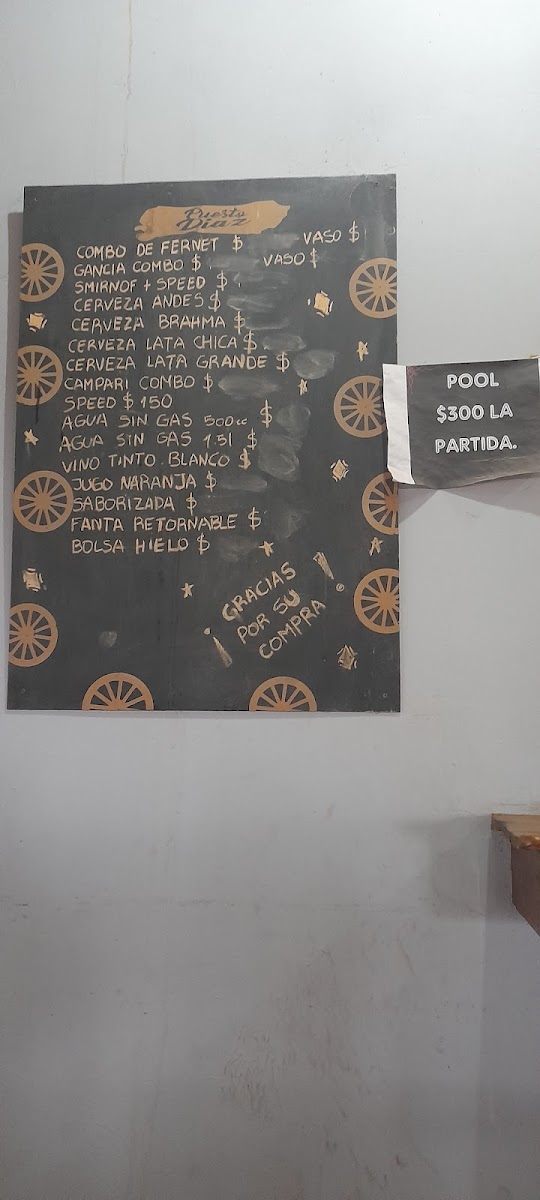 Puesto
Díaz
COMBO DE FERNET $ VASO $
GANCIA COMBO $ VASO $
SMIRNOF + SPEED $
CERVEZA ANDES $
CERVEZA BRAHMA $
CERVEZA LATA CHICA $
CERVEZA LATA GRANDE $
CAMPARI COMBO $
SPEED $ 150
AGUA SIN GAS 500cc $
AGUA SIN GAS 1.5l $
VINO TINTO. BLANCO $
JUGO NARANJA $
SABORIZADA $
FANTA RETORNABLE $
BOLSA HIELO $
¡GRACIAS
POR SU
COMPRA!
POOL
$300 LA
PARTIDA.